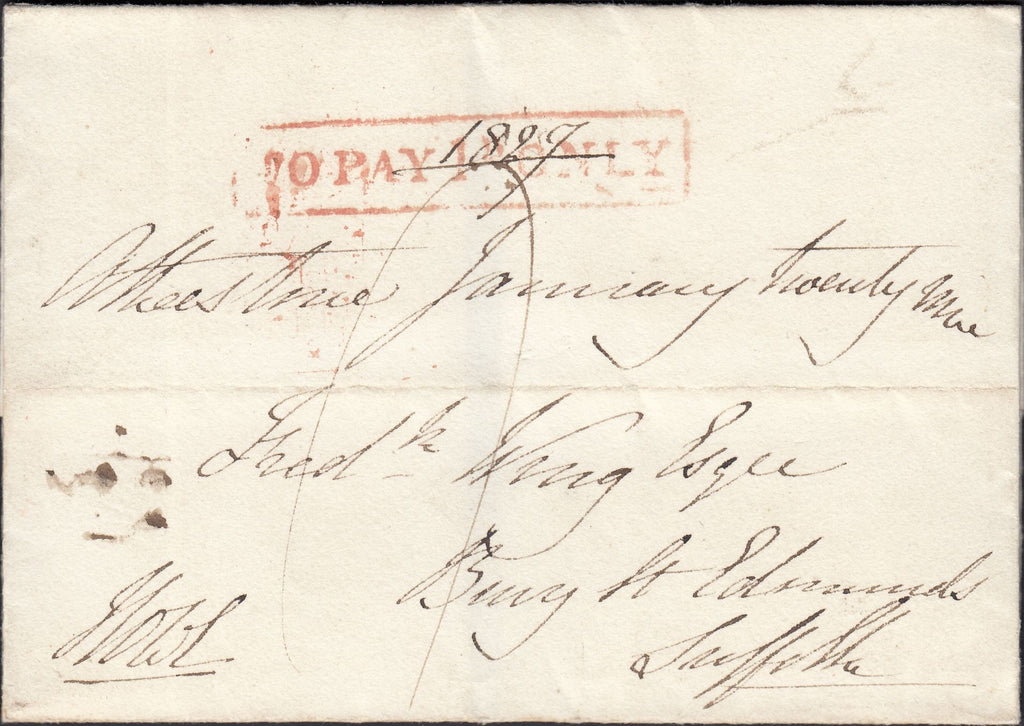 TO PAY 1D ONLY
1827
Atherstone January twenty nine
Fredk Wing Esqre
Bury St Edmunds
Suffolk